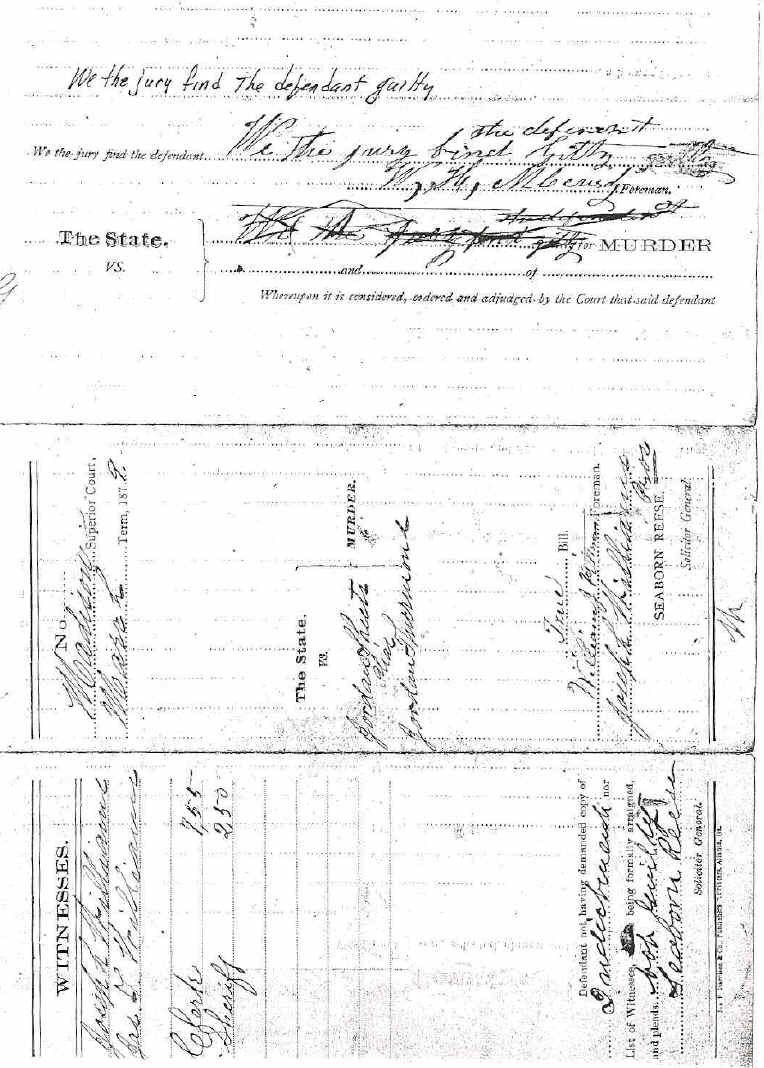 We the jury find The defendant guilty
the defenent
We the jury find the defendant We the jury find gilty
W, H, Foreman.
The State.
vs.
for MURDER
and of
Whereupon it is considered, ordered and adjudged by the Court that said defendant
No.
Madison Superior Court,
March Term, 187
The State.
vs.
MURDER.
Jordan
alias
Jordan
True Bill.
William Foreman.
Joseph Williams Pros
SEABORN REESE.
Solicitor General.
WITNESSES.
Joseph Williams
Williams
Clerk 7.55
Sheriff 2.50
Defendant not having demanded copy of
Indictment nor
List of Witnesses, being formally arraigned,
and pleads, not guilty
Seaborn Reese
Solicitor General.